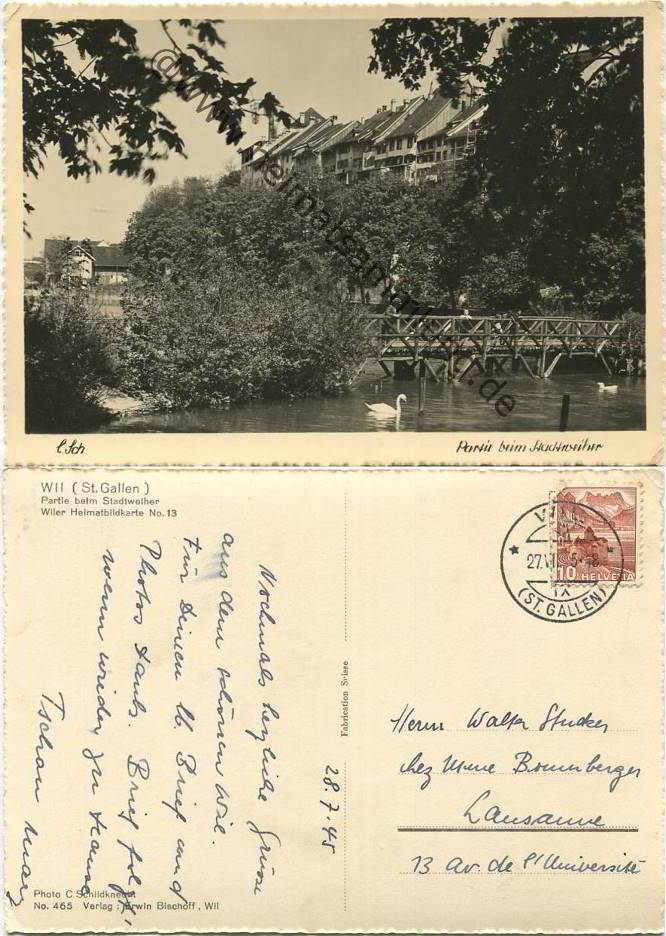 © www.heimatsammlung.de
C.Sch
Partie beim Stadtweiher
WIl (St.Gallen)
Partie beim Stadtweiher
Wiler Heimatbildkarte No. 13
Nochmals herzliche Grüsse
aus dem schönen Wil.
Für Deinen lb. Brief und
Photos danke. Brief folgt,
wenn wieder zu Hause
Tschau
28.7.45
Photo C. Schildknecht
No. 465 Verlag: Erwin Bischoff, Wil
Fabrication Suisse
27.VI
(ST. GALLEN)
10 HELVETIA
Herrn Walter Stucker
chez Mme Bonnenberger
Lausanne
13 Av. de l'Université